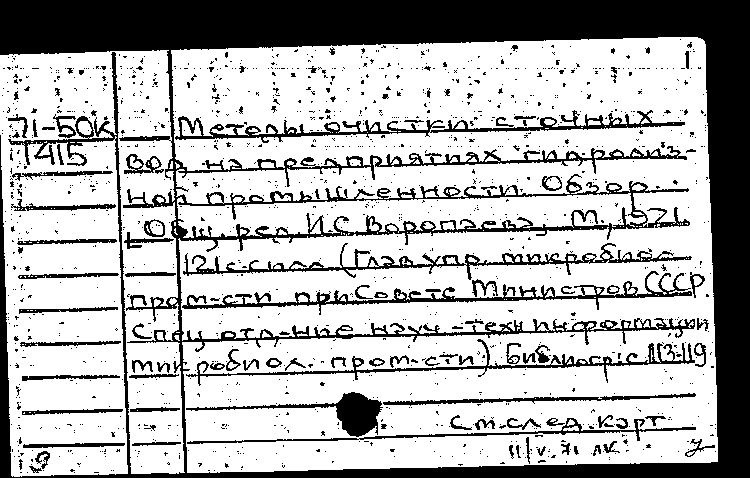 71-50к Методы очистки сточных
1415 вод на предприятиях гидролиз-
ной промышленности. Обзор.
[Общ. ред. И.С. Воропаева], М., 1971.
121 с. с илл. (Глав. упр. микробиол.
пром-сти при Совете Министров СССР.
Спец. отд-ние науч.-техн. информации
микробиол. пром-сти). Библиогр.: с. 113-119
См. след. карт
11/V. 71 ЛК
9